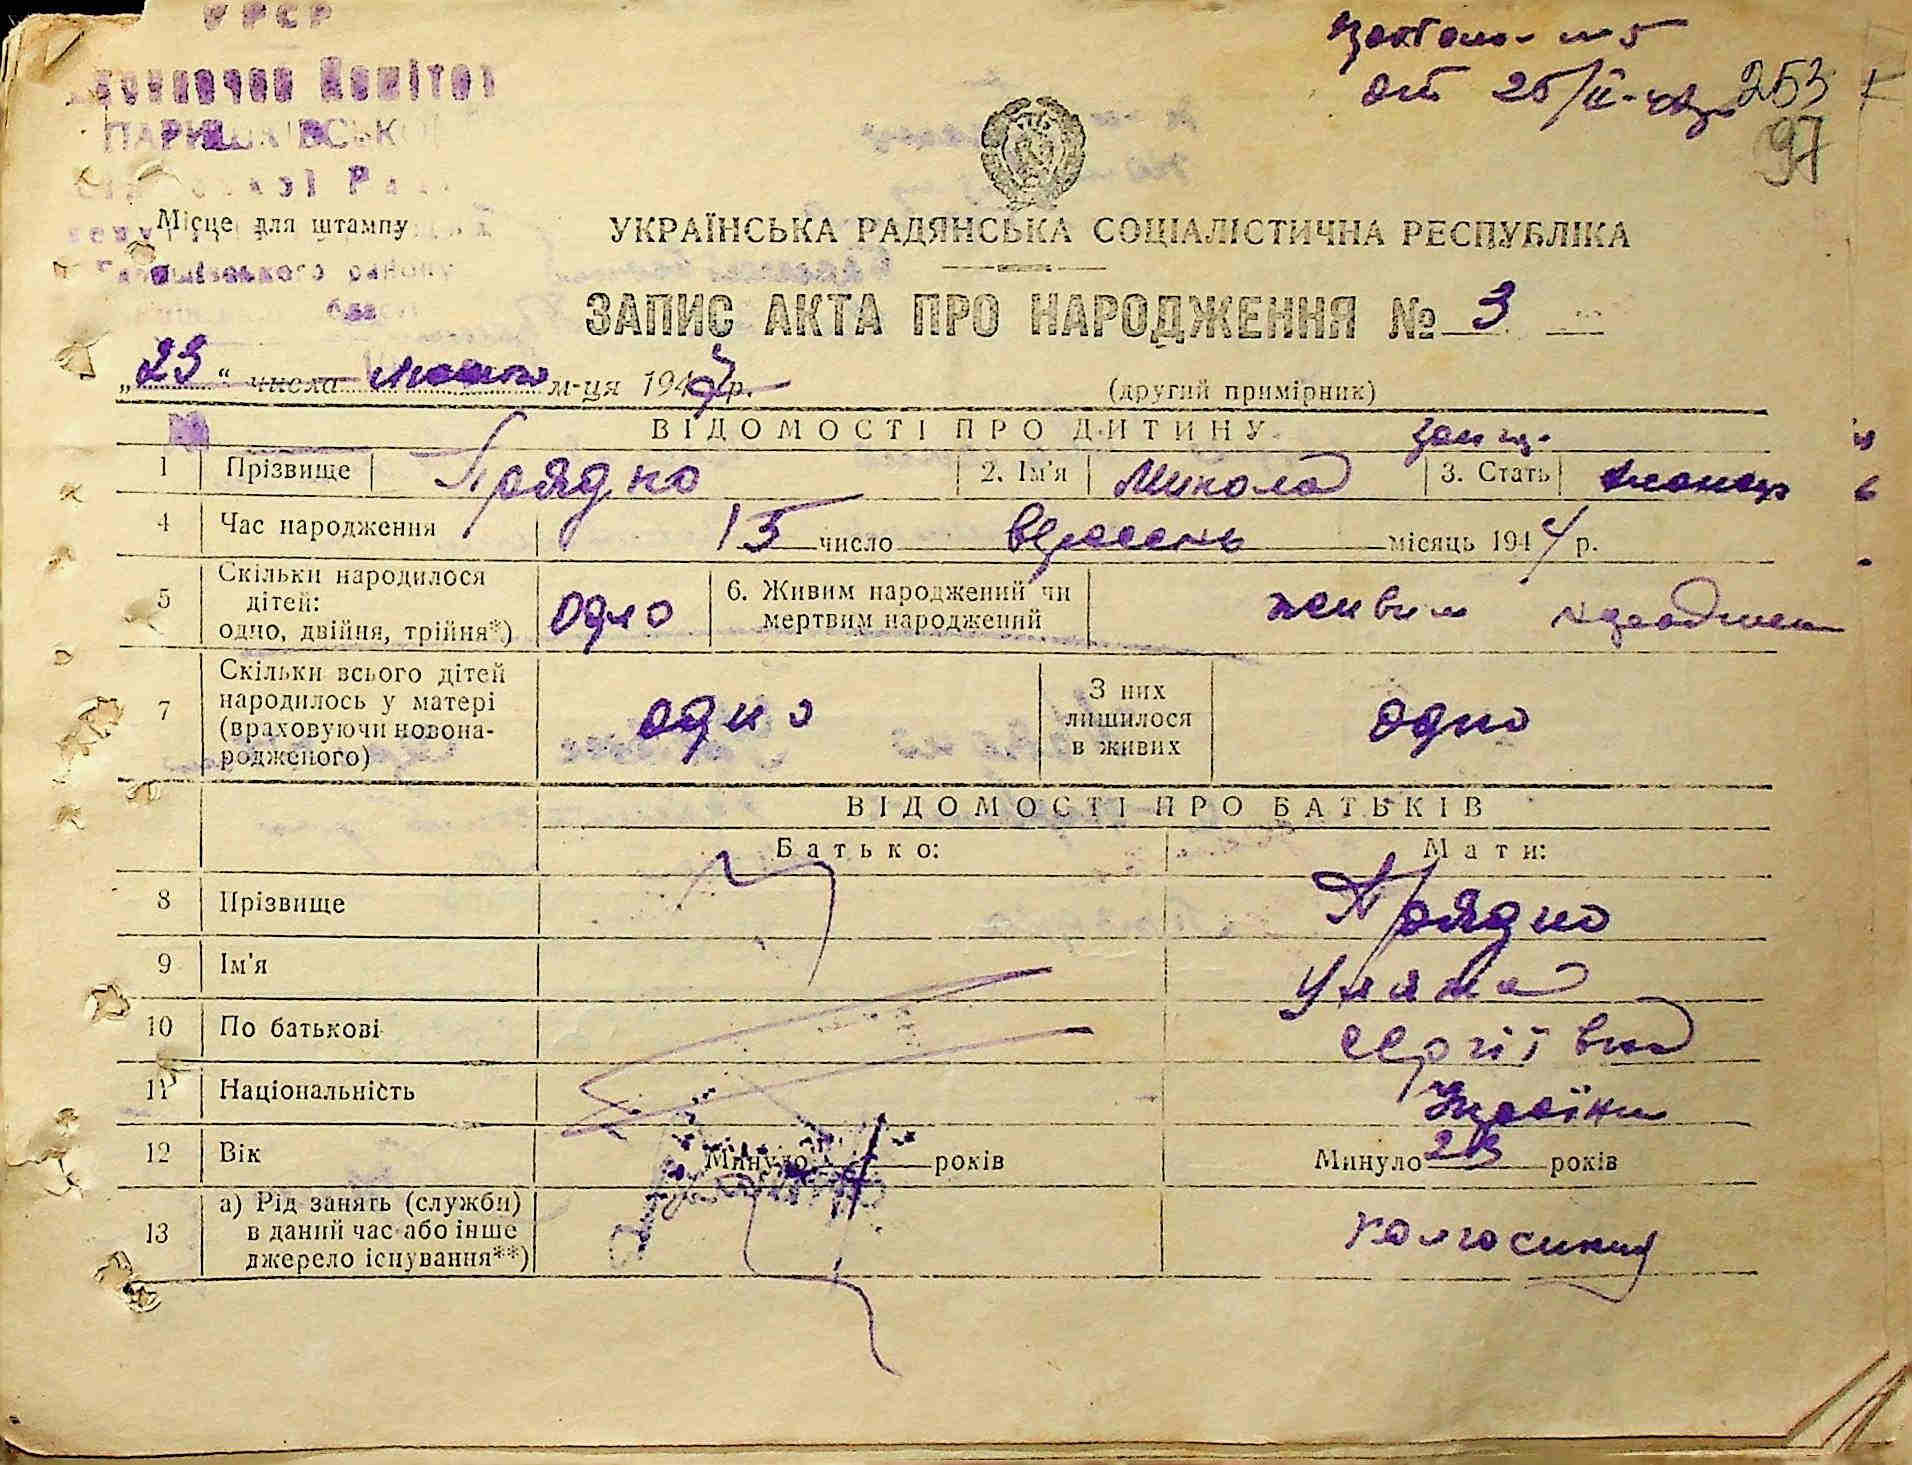 УРСР
Комітет
ПАРИШКІВСЬКОЇ
Місце для штампу
району
от 25/II-47р
253
97
УКРАЇНСЬКА РАДЯНСЬКА СОЦІАЛІСТИЧНА РЕСПУБЛІКА
ЗАПИС АКТА ПРО НАРОДЖЕННЯ № 3
„23“ числа м-ця 1947р.
(другий примірник)
ВІДОМОСТІ ПРО ДИТИНУ
1 Прізвище Прядко 2. Ім'я Микола 3. Стать хлопець
4 Час народження 15 число вересень місяць 1944 р.
5 Скільки народилося дітей: одно, двійня, трійня*) одно 6. Живим народжений чи мертвим народжений живим народжен
7 Скільки всього дітей народилось у матері (враховуючи новонародженого) одно З них лишилося в живих одно
ВІДОМОСТІ ПРО БАТЬКІВ
Батько: Мати:
8 Прізвище Прядко
9 Ім'я Уляна
10 По батькові Сергіївна
11 Національність Українка
12 Вік Минуло років Минуло 23 років
13 а) Рід занять (служби) в даний час або інше джерело існування**) колгоспниця